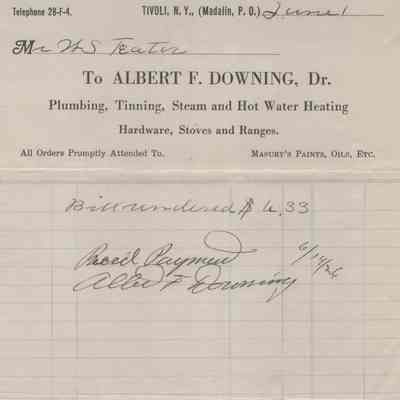 Telephone 28-F-4. TIVOLI, N. Y., (Madalin, P. O.) June 1
Mr W S Teator
To ALBERT F. DOWNING, Dr.
Plumbing, Tinning, Steam and Hot Water Heating
Hardware, Stoves and Ranges.
All Orders Promptly Attended To. MASURY'S PAINTS, OILS, ETC.
Bill rendered $ 6.33
Rec'd Payment 6/14/26
Albert F Downing